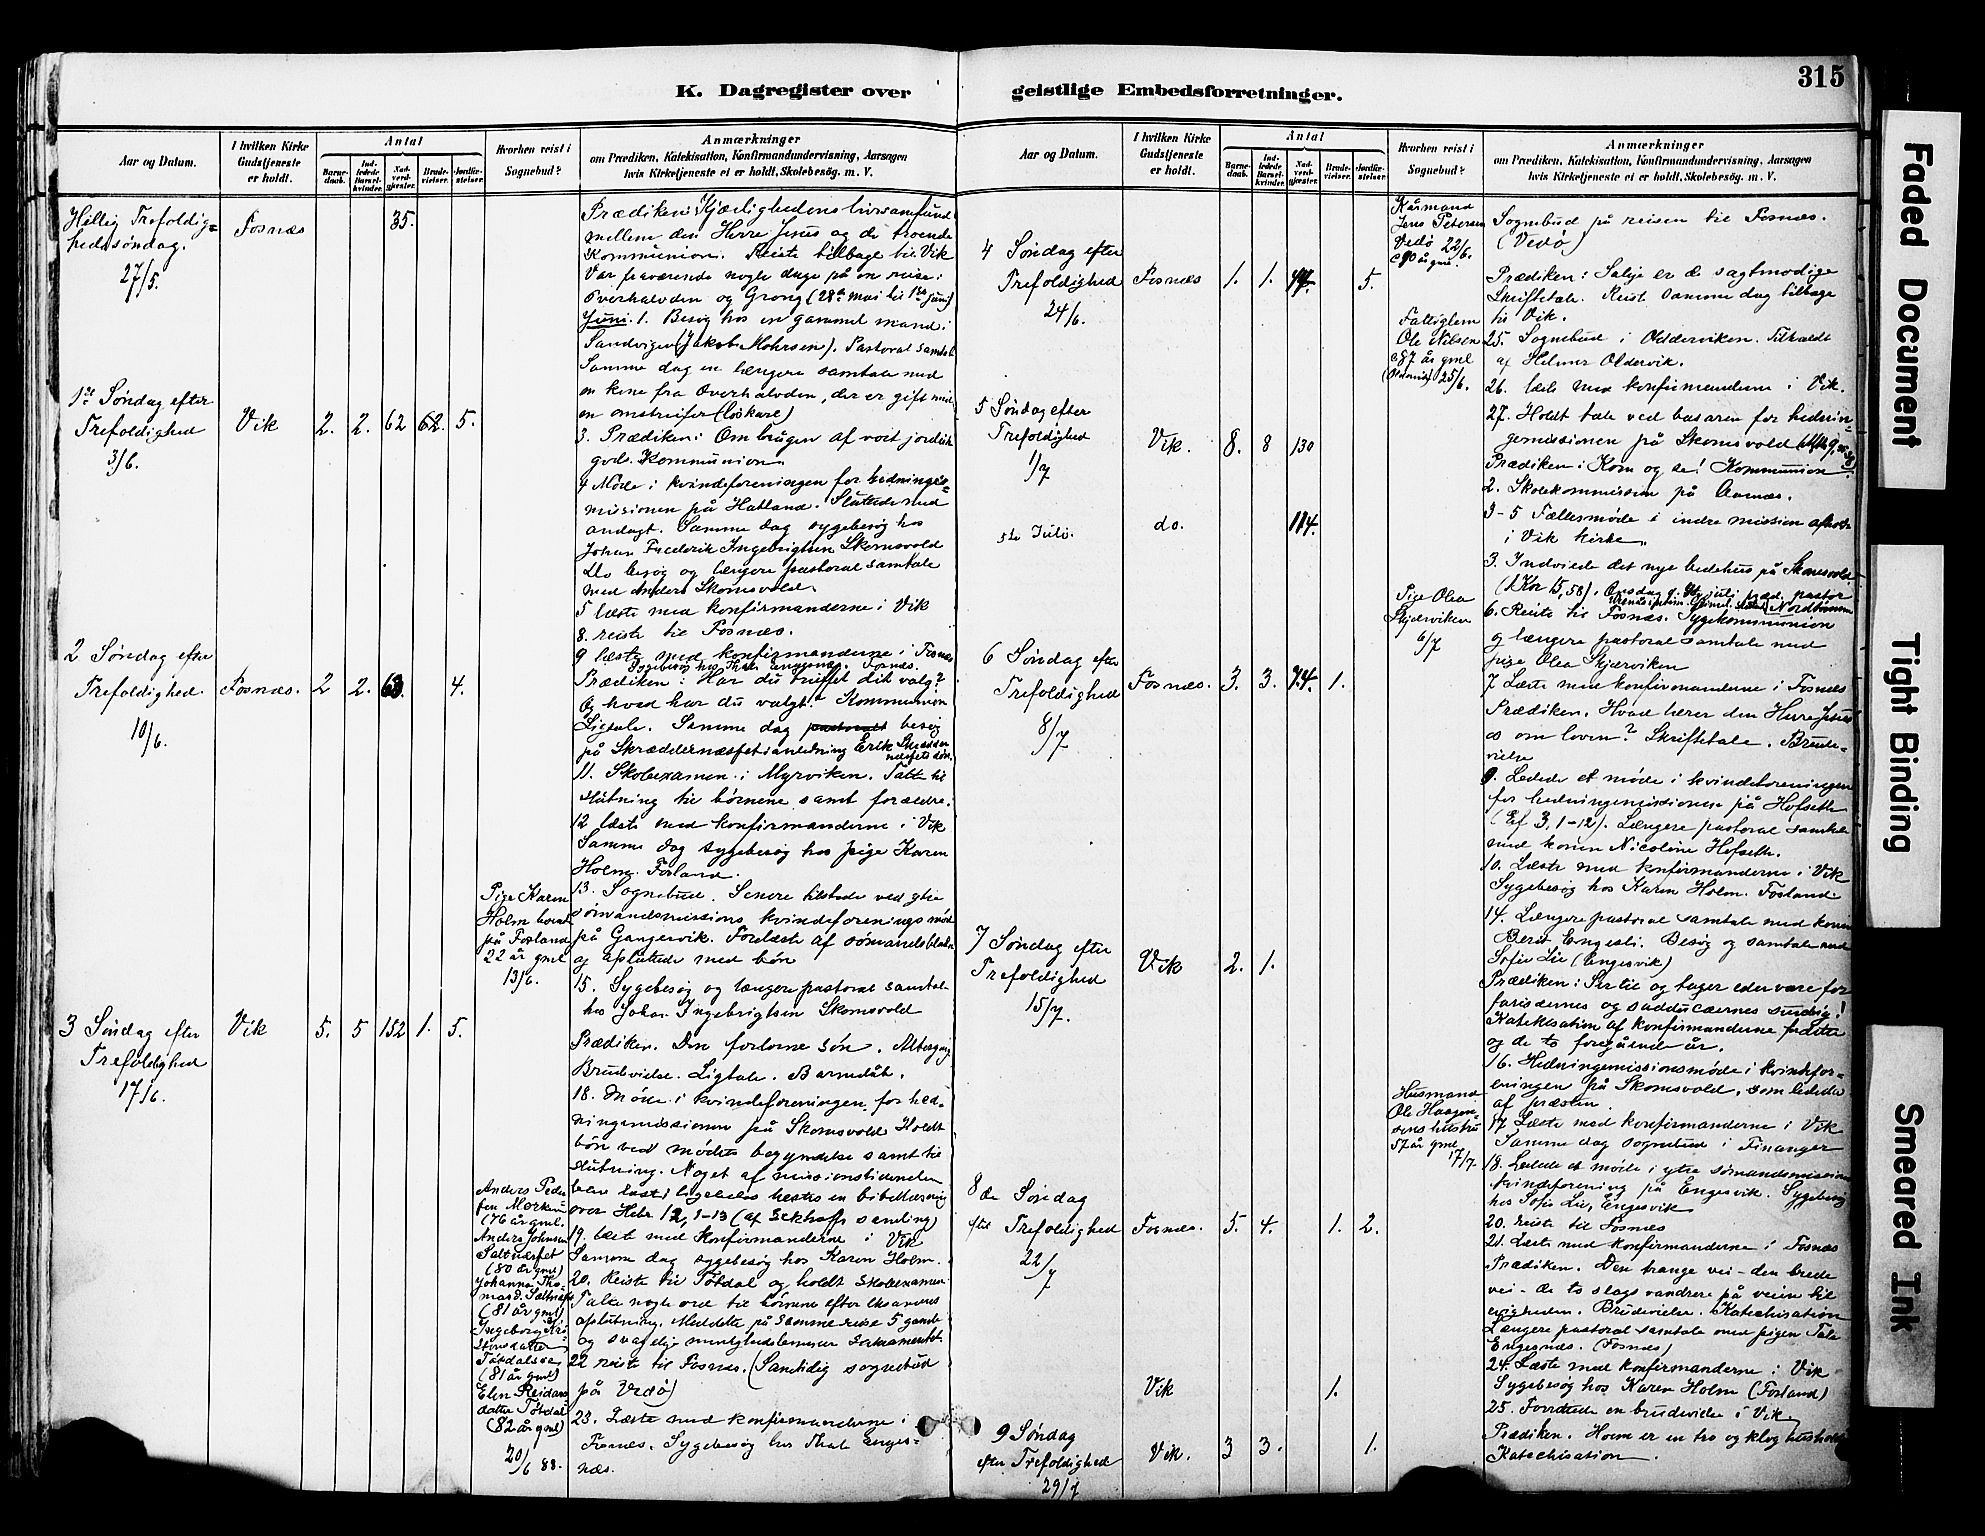 315
K. Dagregister over geistlige Embedsforretninger.
Aar og Datum.
I hvilken Kirke Gudstjeneste er holdt.
Antal
Barnedaab.
Indledede Barselkvinder.
Nadverdgjæster.
Brudevielser.
Jordfæstelser.
Hvorhen reist i Sognebud?
Anmærkninger
om Prædiken, Katekisation, Konfirmandundervisning, Aarsagen
hvis Kirketjeneste ei er holdt, Skolebesög. m. V.
Hellig Trefoldig=
hedssøndag.
27/5.
Fosnæs
35.
Prædiken: Kjærlighedens livssamfund
mellem den Herre Jesus og de troende
Kommunion. Reiste tilbage til Vik
Var fraværende nogle dage på en reise i
Overhalvden og Grong (28de mai til 1ste juni)
Juni. 1. Besøg hos en gammel mand i
Sandvigen (Jakob Mohrsen). Pastoral samtale
Samme dag en længere samtale med
en kone fra Overhalvden, der er gift med
en omstreifer (löskare)
1ste Søndag efter
Trefoldighed
3/6.
Vik
2. 2. 62 62. 5.
3. Prædiken: Om brugen af vort jordiske
gods. Kommunion.
4 Møde i kvindeforeningen for hednings=
missionen på Hatland. Sluttede med
andagt. Samme dag sygebesøg hos
Johan Frederik Ingebrigtsen Skomsvold
Do besøg og længere pastoral samtale
med Anders Skomsvold.
5 læste med konfirmanderne i Vik
8. reiste til Fosnæs.
9 læste med konfirmanderne i Fosnæs
2 Søndag efter
Trefoldighed.
10/6.
Fosnæs.
2 2. 63. 4.
Prædiken: Har du truffet dit valg?
Og hvad har du valgt? Kommunion
Ligtale. Samme dag pastoralt besøg
på Skræddernæsset i anledning Erik
11. Skolexamen i Myrviken. Talte til
slutning til børnene samt forældre.
12 læste med konfirmanderne i Vik
Samme dag sygebesøg hos pige Karen
Holm. Forland.
Pige Karen
Holm
på Forland
22 år gml
13/6.
13. Sognebud. Senere tilstede ved ytre
sømandsmissions kvindeforenings møde
på Gangervik. Forelæste af sømandsbladet
og afsluttede med bøn
15. Sygebesøg og længere pastoral samtale
hos Johan Ingebrigtsen Skomsvold
3 Søndag efter
Trefoldighed
17/6.
Vik
5. 5 152 1. 5.
Prædiken. Den forlorne søn. Altergang
Brudevielse. Ligtale. Barnedåb.
18. Møde i kvindeforeningen for hed-
ningemissionen på Skomsvold. Holdt
bøn ved mødets begyndelse samt til
slutning. Noget af missionstidenden
blev læst; ligeledes læstes en bibellæsning
over Hebr 12, 1-13 (af Sckhoffs samling)
Anders Peder
sen Morkum
(76 år gml.
Anders Johnsen
Saltnæsset
(80 år gml)
Johanna Tho
masd. Saltnæs
(81 år gml)
Ingeborg Kri
stensdatter
Tøtdalsve
(81 år gml)
Elen Reidars
datter Tøtdal
(82 år gml)
20/6 88.
19. læst med konfirmanderne i Vik
Samme dag sygebesøg hos Karen Holm.
20. Reiste til Tøtdal og holdt Skolexamen
Talte nogle ord til børnene efter examens
afslutning. Meddelte på samme reise 5 gamle
og svagelige menighedslemmer sakramentet.
22 reiste til Fosnæs. (Samtidig sognebud
på Vedø)
23. Læste med konfirmanderne i
Fosnæs. Sygebesøg hos Thale Enges-
næs.
Aar og Datum.
I hvilken Kirke Gudstjeneste er holdt.
Antal
Barnedaab.
Indledede Barselkvinder.
Nadverdgjæster.
Brudevielser.
Jordfæstelser.
Hvorhen reist i Sognebud?
Anmærkninger
om Prædiken, Katekisation, Konfirmandundervisning, Aarsagen
hvis Kirketjeneste ei er holdt, Skolebesög. m. V.
Kårmand
Jens Petersen
Vedø 22/6.
Sognebud på reisen til Fosnæs.
(Vedø)
4 Søndag efter
Trefoldighed
24/6.
Fosnæs
1. 1. 44. 5.
Prædiken: Salige er de sagtmodige
Skriftetale. Reist samme dag tilbage
til Vik.
Fattiglem
Ole Nilsen
87 år gml
25/6.
25. Sognebud i Olderviken. Tilkaldt
af Helmer Oldervik.
26. læste med konfirmanderne i Vik.
27. Holdt tale ved basaren for hednin-
gemissionen på Skomsvold
5 Søndag efter
Trefoldighed
1/7
Vik.
8. 8 130
Prædiken: Kom og se! Kommunion.
2. Skolekommission på Aavnæs.
5te Juli.
do.
114.
3-5 Fællesmøde i indre mission afholdt
i Vik kirke.
3. Indviede det nye bedehus på Skomsvold
(1 Kor 15, 58).
Pige Olea
Skjærviken
6/7
6. Reiste til Fosnæs. Sygekommunion
og længere pastoral samtale med
pige Olea Skjærviken
7 Læste med konfirmanderne i Fosnæs
6 Søndag efter
Trefoldighed
8/7
Fosnæs.
3. 3. 74. 1.
Prædiken. Hvad lærer den Herre Jesus
os om loven? Skriftetale. Brude-
vielse
9. Ledede et møde i kvindeforeningen
for hedningemissionen på Hofseth
(Ef 3, 1-12). Længere pastoral samtale
med konen Nicoline Hofseth.
10. Læste med konfirmanderne i Vik
Sygebesøg hos Karen Holm. Forland
14. Længere pastoral samtale med konen
Berit Engesli. Besøg og samtale med
Sofie Lie (Engesvik)
7 Søndag efter
Trefoldighed
15/7.
Vik
2. 1.
Prædiken: Ser til og tager eder vare for
farisæernes og sadducæernes surdeig!
Katekisation af konfirmanderne fra dette
og de to foregående år.
16. Hedningemissionsmøde i kvindefor-
eningen på Skomsvold, som lededes
af præsten.
Husmand
Ole Haagen-
sens hustru
57 år gml
17/7.
17. Læste med konfirmanderne i Vik
Samme dag sognebud i Finanger
18. Ledede et møde i ytre sømandsmissions
kvindeforening på Engesvik. Sygebesøg
hos Sofie Lie, Engesvik
20. reiste til Fosnæs
21. Læste med konfirmanderne i Fosnæs
8de Søndag
efter Trefoldighed
22/7
Fosnæs.
5. 4. 1. 2.
Prædiken. Den trange vei – den brede
vei – de to slags vandrere på veien til
evigheden. Brudevielse. Katechisation
Længere pastoral samtale med pigen Tale
Engesnæs. (Fosnæs)
24. Læste med konfirmanderne i Vik
Sygebesøg hos Karen Holm (Forland)
Vik
1.
25. Forrettede en brudevielse i Vik
9 Søndag
efter Trefoldighed
29/7
Vik.
3 3. 1.
Prædiken. Hvem er en tro og klog husholder
Katechisation.
Faded Document
Tight Binding
Smeared Ink